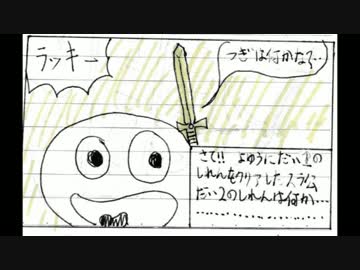 ラッキー
つぎは何かなぁ…
さて!! よゆうにだい1の
しれんをクリアしたスライム
だい2のしれんは何か…
………………